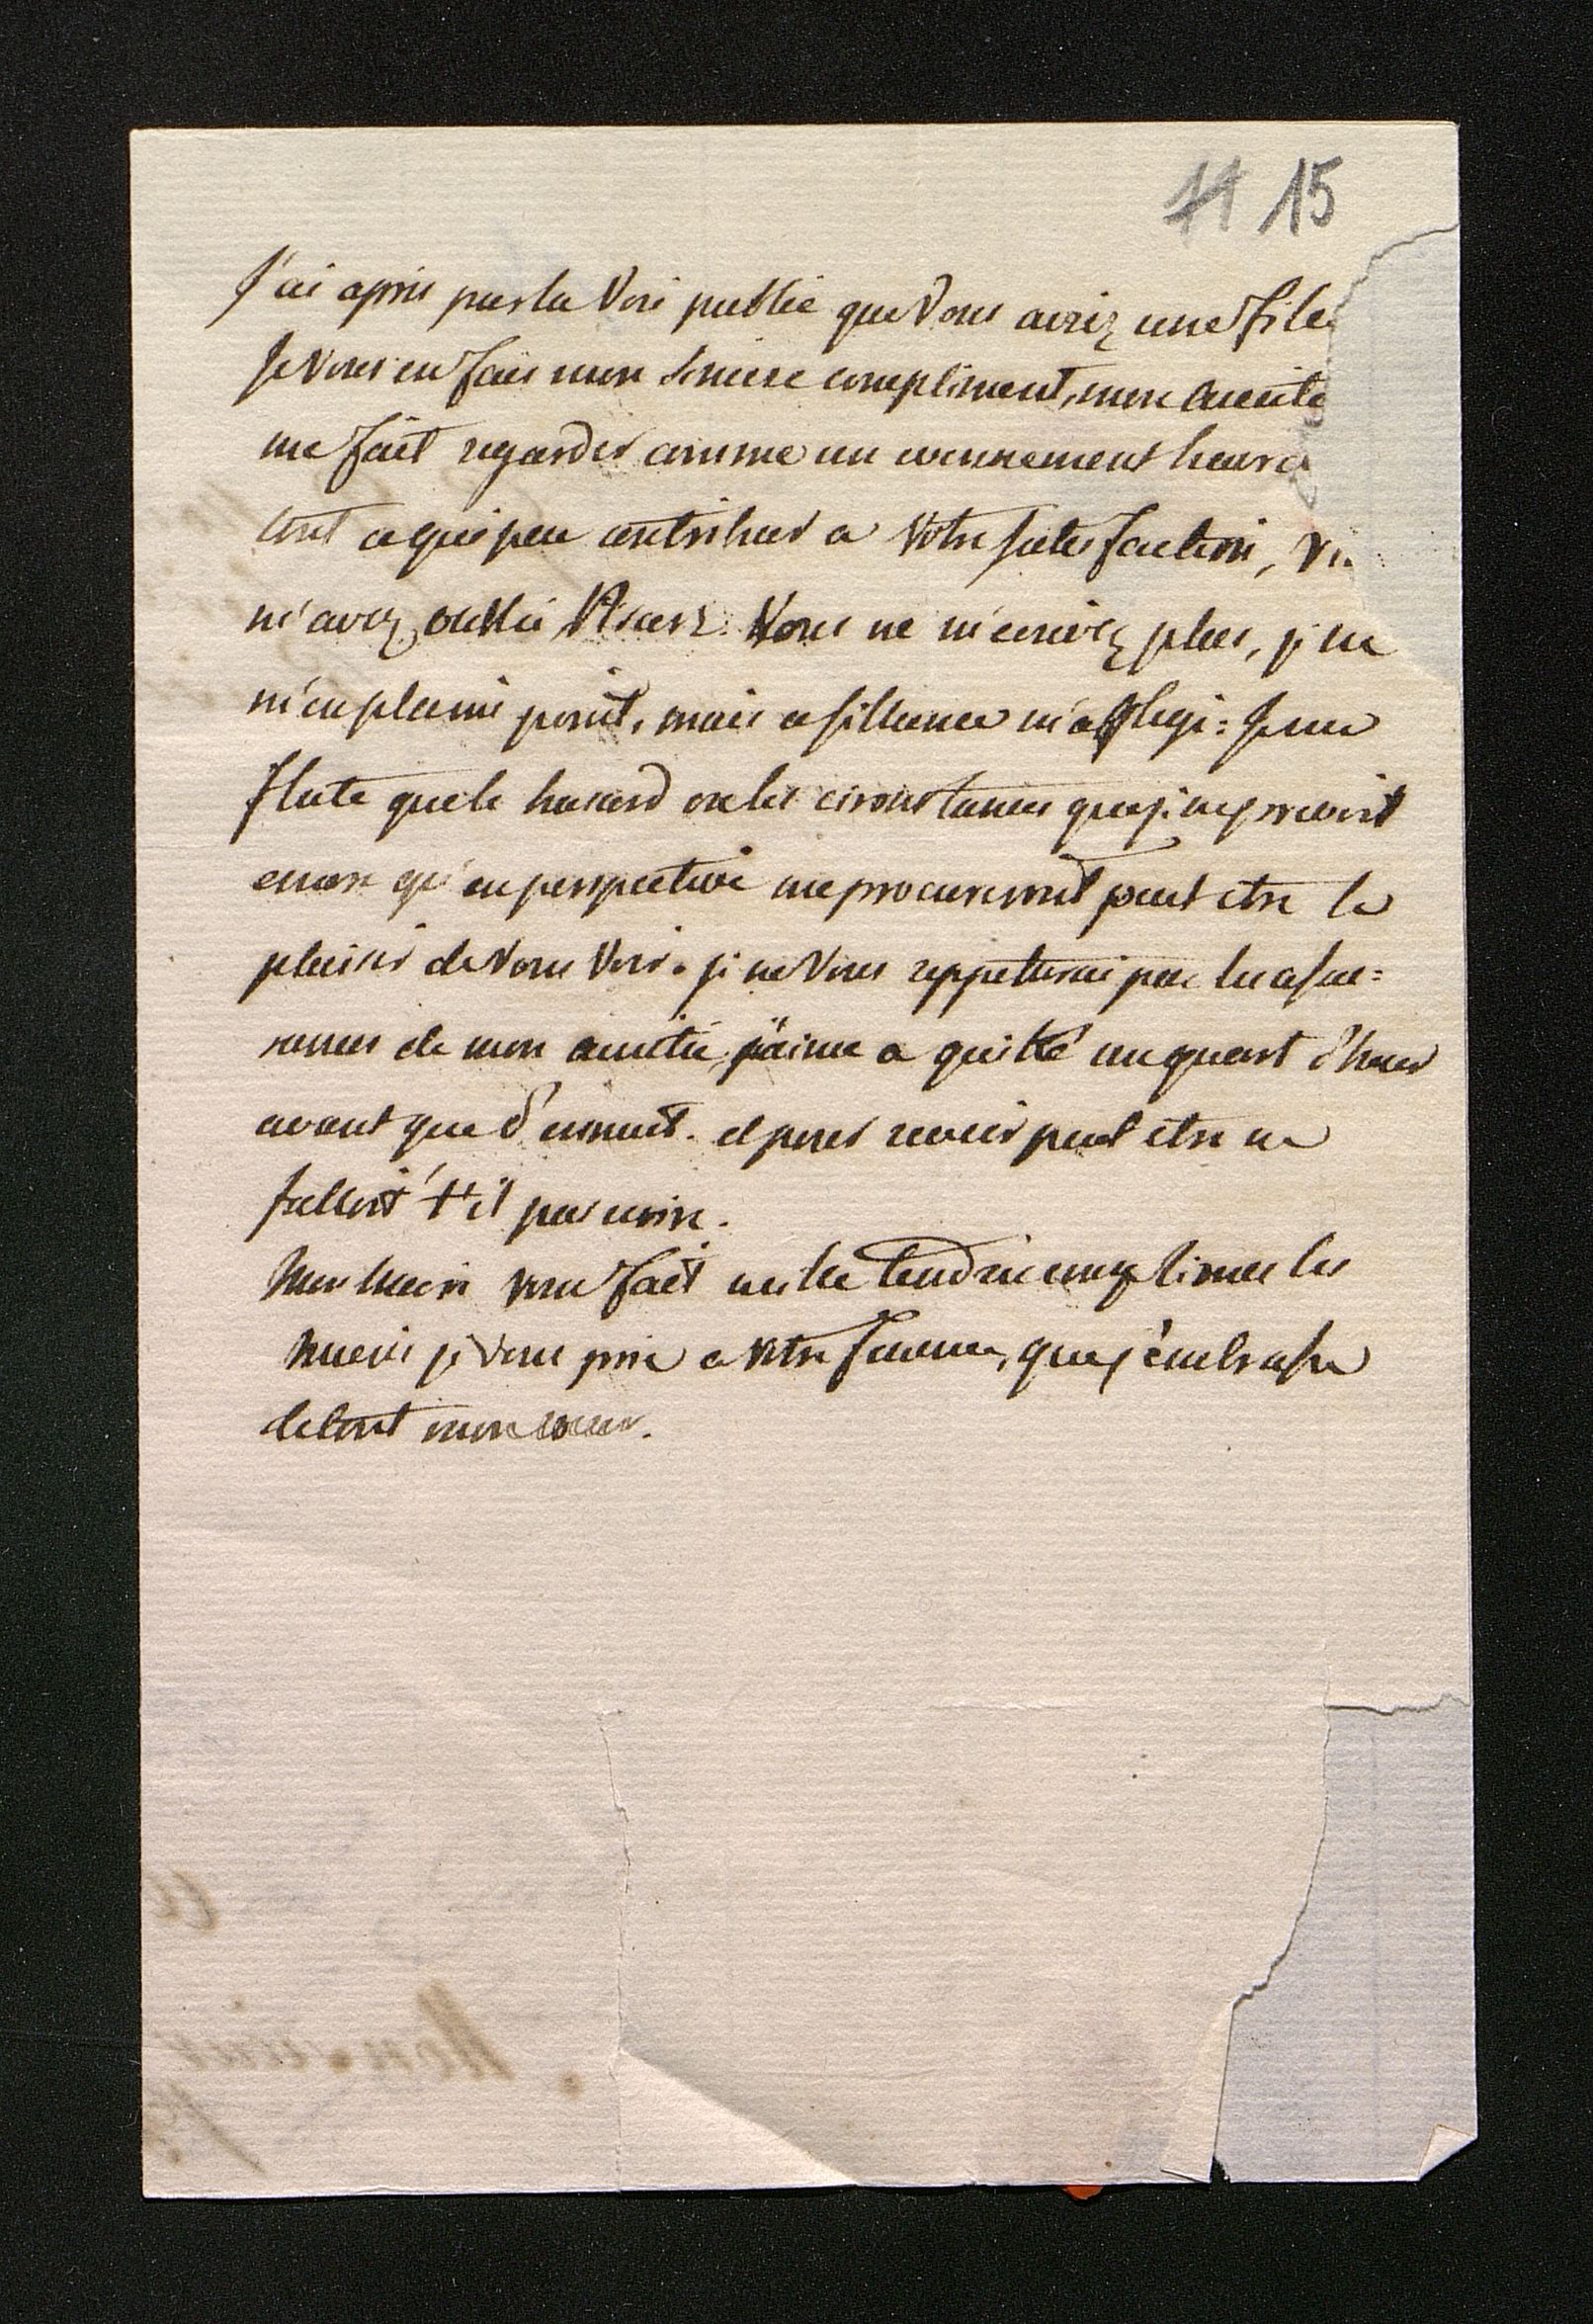 11 15
J'ai apris par la Voix public que Vous aviez une file
Je Vous en fais mon sincere compliment, mon amitie
me fait regarder comme un evennement heure
tout ce qui peu contribuer a Votre satisfaction, V
m'avez oublié Vous ne m'ecrivez plus, je ne
m'en plains point, mais ce sillence m'afflige: Je me
flate que le hasard ou les circonstances que je ne prevoit
encore qu'en perspective me procureront peut etre le
plaisir de Vous Voir. je ne Vous reppeterai pas les assu=
rances de mon amitié, j'aime a quitté un quart d'heure
avant que d'ennuié. et pour reussir peut etre ne
falloit t'il pas ecrire.
Mon mari vous fait mille tendre compliments les
miens je vous prie a votre femme, que j'embrasse
de tout mon coeur.